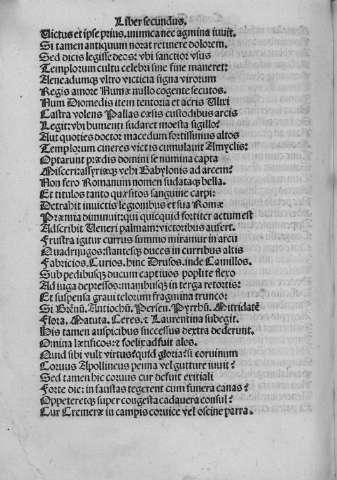 Liber secundus.
Victus et ipse prius, inimica nec agmina iuuit.
Si tamen antiquum norat retinere dolorem.
Sed dicis legisse deos: vbi sanctior vsus
Templorum cultu celebri sine fine maneret:
Aeneadumq3 vltro victicia signa virorum
Regis amore Numæ nullo cogente secutos.
Num Diomedis item tentoria et acris Vlixi
Castra volens Pallas cæsis custodibus arcis
Legit: vbi humenti sudaret moesta sigillo?
Aut quoties doctor macedum fortissimus altos
Templorum cineres victis cumulauit Amyclis:
Optarunt prædis domini se numina capta
Misceri: assyriasq3 vehi Babylonis ad arcem?
Non fero Romanum nomen sudataq3 bella.
Et titulos tanto quæsitos sanguine carpi:
Detrahit inuictis legionibus et sua Romæ
Præmia diminuit: qui quicquid fortiter actum est
Adscribit Veneri palmam: victoribus aufert.
Frustra igitur currus summo miramur in arcu
Quadriiugos: stantesq3 duces in curribus altis
Fabricios. Curios. hinc Drusos. inde Camillos.
Sub pedibusq3 ducum captiuos poplite flexo
Ad iuga depressos: manibusq3 in terga retortis:
Et suspensa graui telorum fragmina trunco:
Si Brēnū, Antiochū, Persen, Pyrrhū, Mitridatē
Flora, Matuta, Ceres, et Laurentina subegit.
His tamen auspicibus successus dextra dederunt.
Omina lætificos: et foelix adfuit ales.
Quid sibi vult virtus: quid gloria: si coruinum
Coruus Apollineus penna vel gutture iuuit?
Sed tamen hic coruus cur defuit exitiali
Forte die: infaustas tegerent cum funera canas?
Oppeteretq3 super congesta cadauera consul?
Cur Cremeræ in campis cornice vel oscine parra.